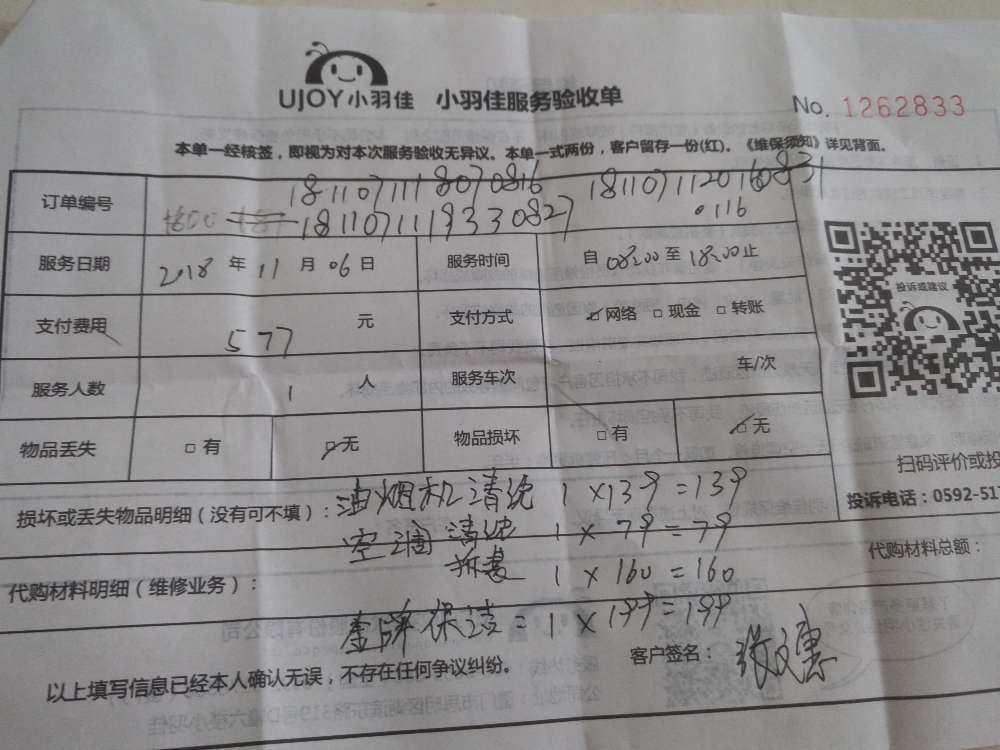 UJOY小羽佳 小羽佳服务验收单
No. 1262833
本单一经核签，即视为对本次服务验收无异议。本单一式两份，客户留存一份(红)。《维保须知》详见背面。
订单编号 1811071118070816 1811071120160831
1811071119330827 0116
服务日期 2018 年 11 月 06 日 服务时间 自 08:00 至 18:00 止
投诉或建议
支付费用 577 元 支付方式 ☑ 网络 □ 现金 □ 转账
服务人数 1 人 服务车次 车/次
物品丢失 □ 有 ☑ 无 物品损坏 □ 有 ☑ 无
扫码评价或投
损坏或丢失物品明细（没有可不填）： 油烟机清洗 1×139=139
投诉电话：0592-517
空调清洗 1×79=79
代购材料明细（维修业务）： 拆装 1×160=160
代购材料总额：
金牌保洁=1×199=199
以上填写信息已经本人确认无误，不存在任何争议纠纷。 客户签名：